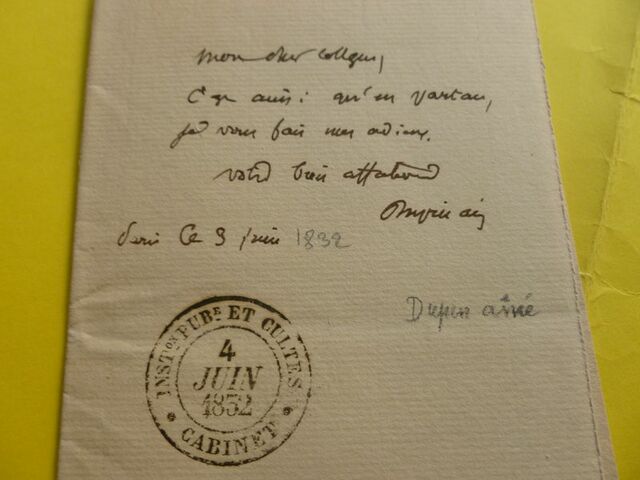 mon cher collègue,
C'est ainsi qu'en partant,
je vous fais mes adieux.
votre bien affectionné
Dupin aîné
Paris Ce 3 juin 1832
Dupin aîné
INSTON PUBE ET CULTES
4
JUIN
1832
* CABINET *